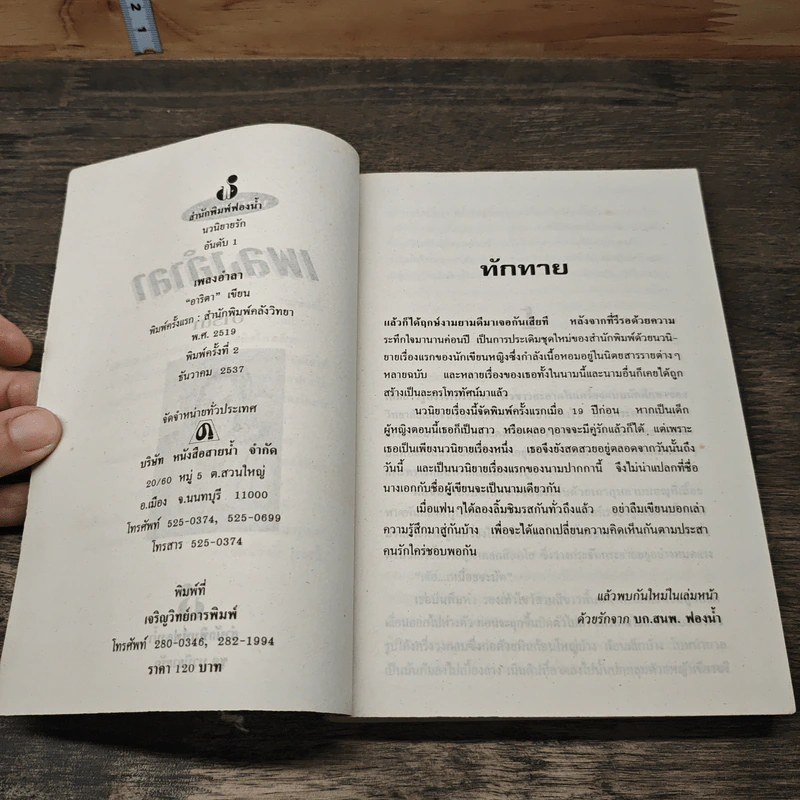 2
1
สำนักพิมพ์ฟองน้ำ
นวนิยายรัก
อันดับ 1
เพลงอำลา
"อาริตา" เขียน
พิมพ์ครั้งแรก : สำนักพิมพ์คลังวิทยา
พ.ศ. 2519
พิมพ์ครั้งที่ 2
ธันวาคม 2537
จัดจำหน่ายทั่วประเทศ
บริษัท หนังสือสายน้ำ จำกัด
20/60 หมู่ 5 ต.สวนใหญ่
อ.เมือง จ.นนทบุรี 11000
โทรศัพท์ 525-0374, 525-0699
โทรสาร 525-0374
พิมพ์ที่
เจริญวิทย์การพิมพ์
โทรศัพท์ 280-0346, 282-1994
ราคา 120 บาท
ทักทาย
แล้วก็ได้ฤกษ์งามยามดีมาเจอกันเสียที หลังจากที่รีรอด้วยความ
ระทึกใจมานานค่อนปี เป็นการประเดิมชุดใหม่ของสำนักพิมพ์ด้วยนวนิ-
ยายเรื่องแรกของนักเขียนหญิงซึ่งกำลังเนื้อหอมอยู่ในนิตยสารรายต่างๆ
หลายฉบับ และหลายเรื่องของเธอทั้งในนามนี้และนามอื่นก็เคยได้ถูก
สร้างเป็นละครโทรทัศน์มาแล้ว
นวนิยายเรื่องนี้จัดพิมพ์ครั้งแรกเมื่อ 19 ปีก่อน หากเป็นเด็ก
ผู้หญิงตอนนี้เธอก็เป็นสาว หรือเผลอๆอาจจะมีคู่รักแล้วก็ได้ แต่เพราะ
เธอเป็นเพียงนวนิยายเรื่องหนึ่ง เธอจึงยังสดสวยอยู่ตลอดจากวันนั้นถึง
วันนี้ และเป็นนวนิยายเรื่องแรกของนามปากกานี้ จึงไม่น่าแปลกที่ชื่อ
นางเอกกับชื่อผู้เขียนจะเป็นนามเดียวกัน
เมื่อแฟนๆได้ลองลิ้มชิมรสกันทั่วถึงแล้ว อย่าลืมเขียนบอกเล่า
ความรู้สึกมาสู่กันบ้าง เพื่อจะได้แลกเปลี่ยนความคิดเห็นกันตามประสา
คนรักใคร่ชอบพอกัน
แล้วพบกันใหม่ในเล่มหน้า
ด้วยรักจาก บก.สนพ. ฟองน้ำ